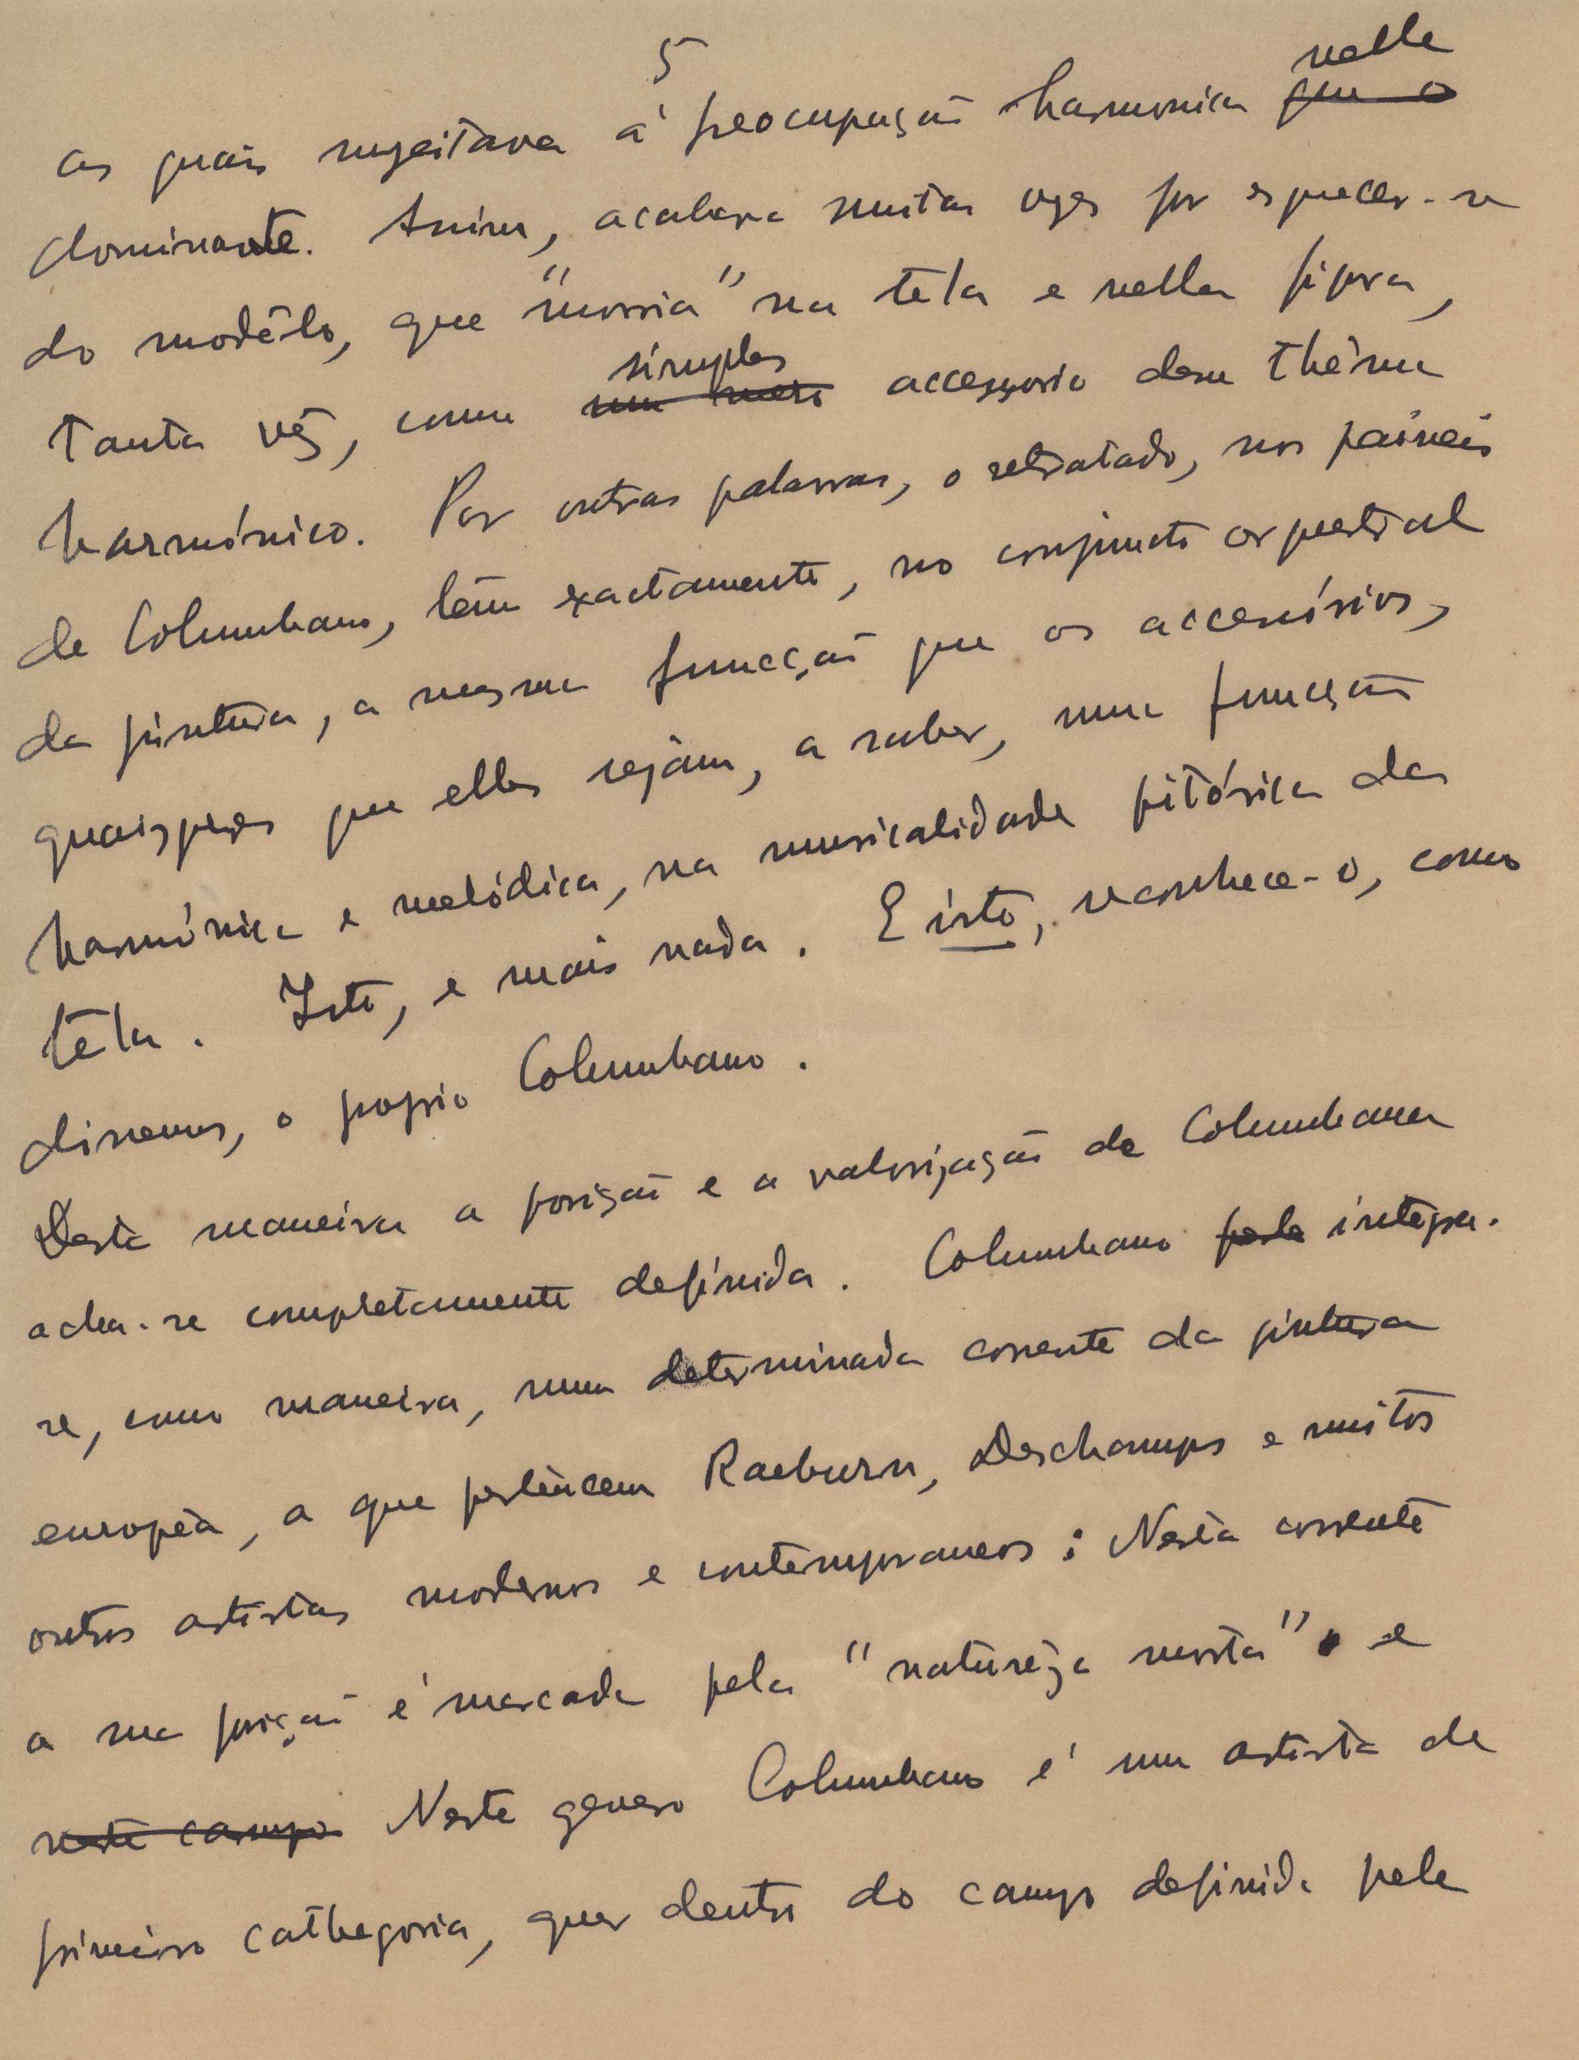 5
nelle
as quais sugeitava á preocupação harmonica que o
dominante. Assim, acabava muitas vezes por esquecer-se
do modêlo, que "morria" na téla e nella figura,
simples
tanta vêz, como um mero accessorio dum théma
harmónico. Por outras palavras, o retratado, nos paineis
de Columbano, têm exactamente, no conjuncto orquestral
da pintura, a mesma funcção que os accessórios,
quaisqueres que elles sejam, a saber, uma funcção
harmónica e melódica, na musicalidade pitórica da
téla. Isto, e mais nada. E isto, reconhece-o, como
dissemos, o proprio Columbano.
Desta maneira a posição e a valorização de Columbano
acha-se completamente definida. Columbano pode integra-
se, como maneira, numa determinada corrente da pintura
europêa, a que pertencem Raeburn, Deschamps e muitos
outros artistas modernos e contemporaneos: Nesta corrente
a sua posição é marcada pela "naturêza morta" e
neste campo Neste genero Columbano é um artista de
primeira cathegoria, quer dentro do campo definido pela